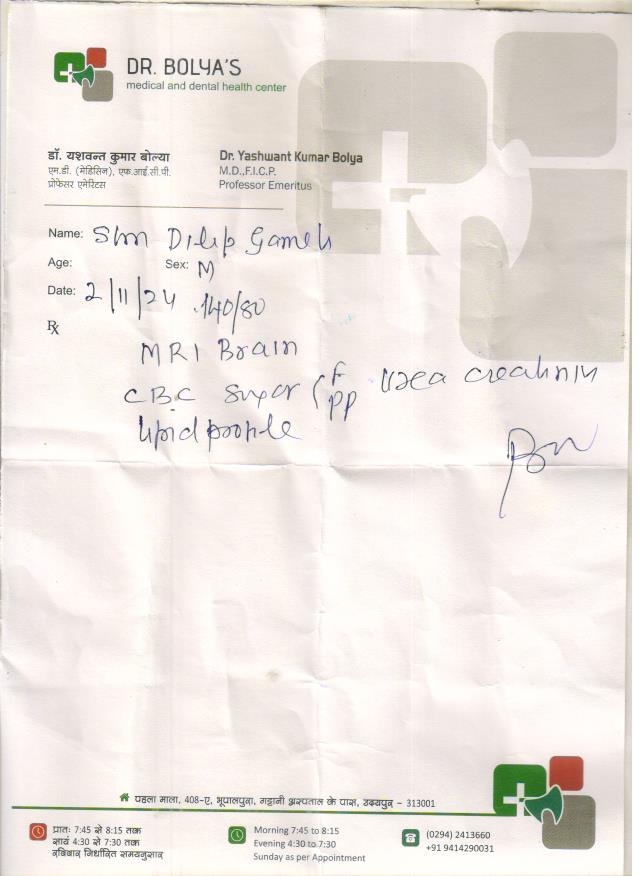 DR. BOLYA'S
medical and dental health center
डॉ. यशवन्त कुमार बोल्या
एम.डी. (मेडिसिन), एफ.आई.सी.पी.
प्रोफेसर एमेरिटस
Dr. Yashwant Kumar Bolya
M.D.,F.I.C.P.
Professor Emeritus
Name: Shri Dilip
Age: Sex: M
Date: 2/11/24 140/80
Rx
MRI Brain
CBC Sugar ( F PP Urea creatinin
lipid profile
पहला माला, 408-ए, भूपालपुरा, गट्टानी अस्पताल के पास, उदयपुर - 313001
प्रातः 7:45 से 8:15 तक
सायं 4:30 से 7:30 तक
रविवार निर्धारित समयनुसार
Morning 7:45 to 8:15
Evening 4:30 to 7:30
Sunday as per Appointment
(0294) 2413660
+91 9414290031